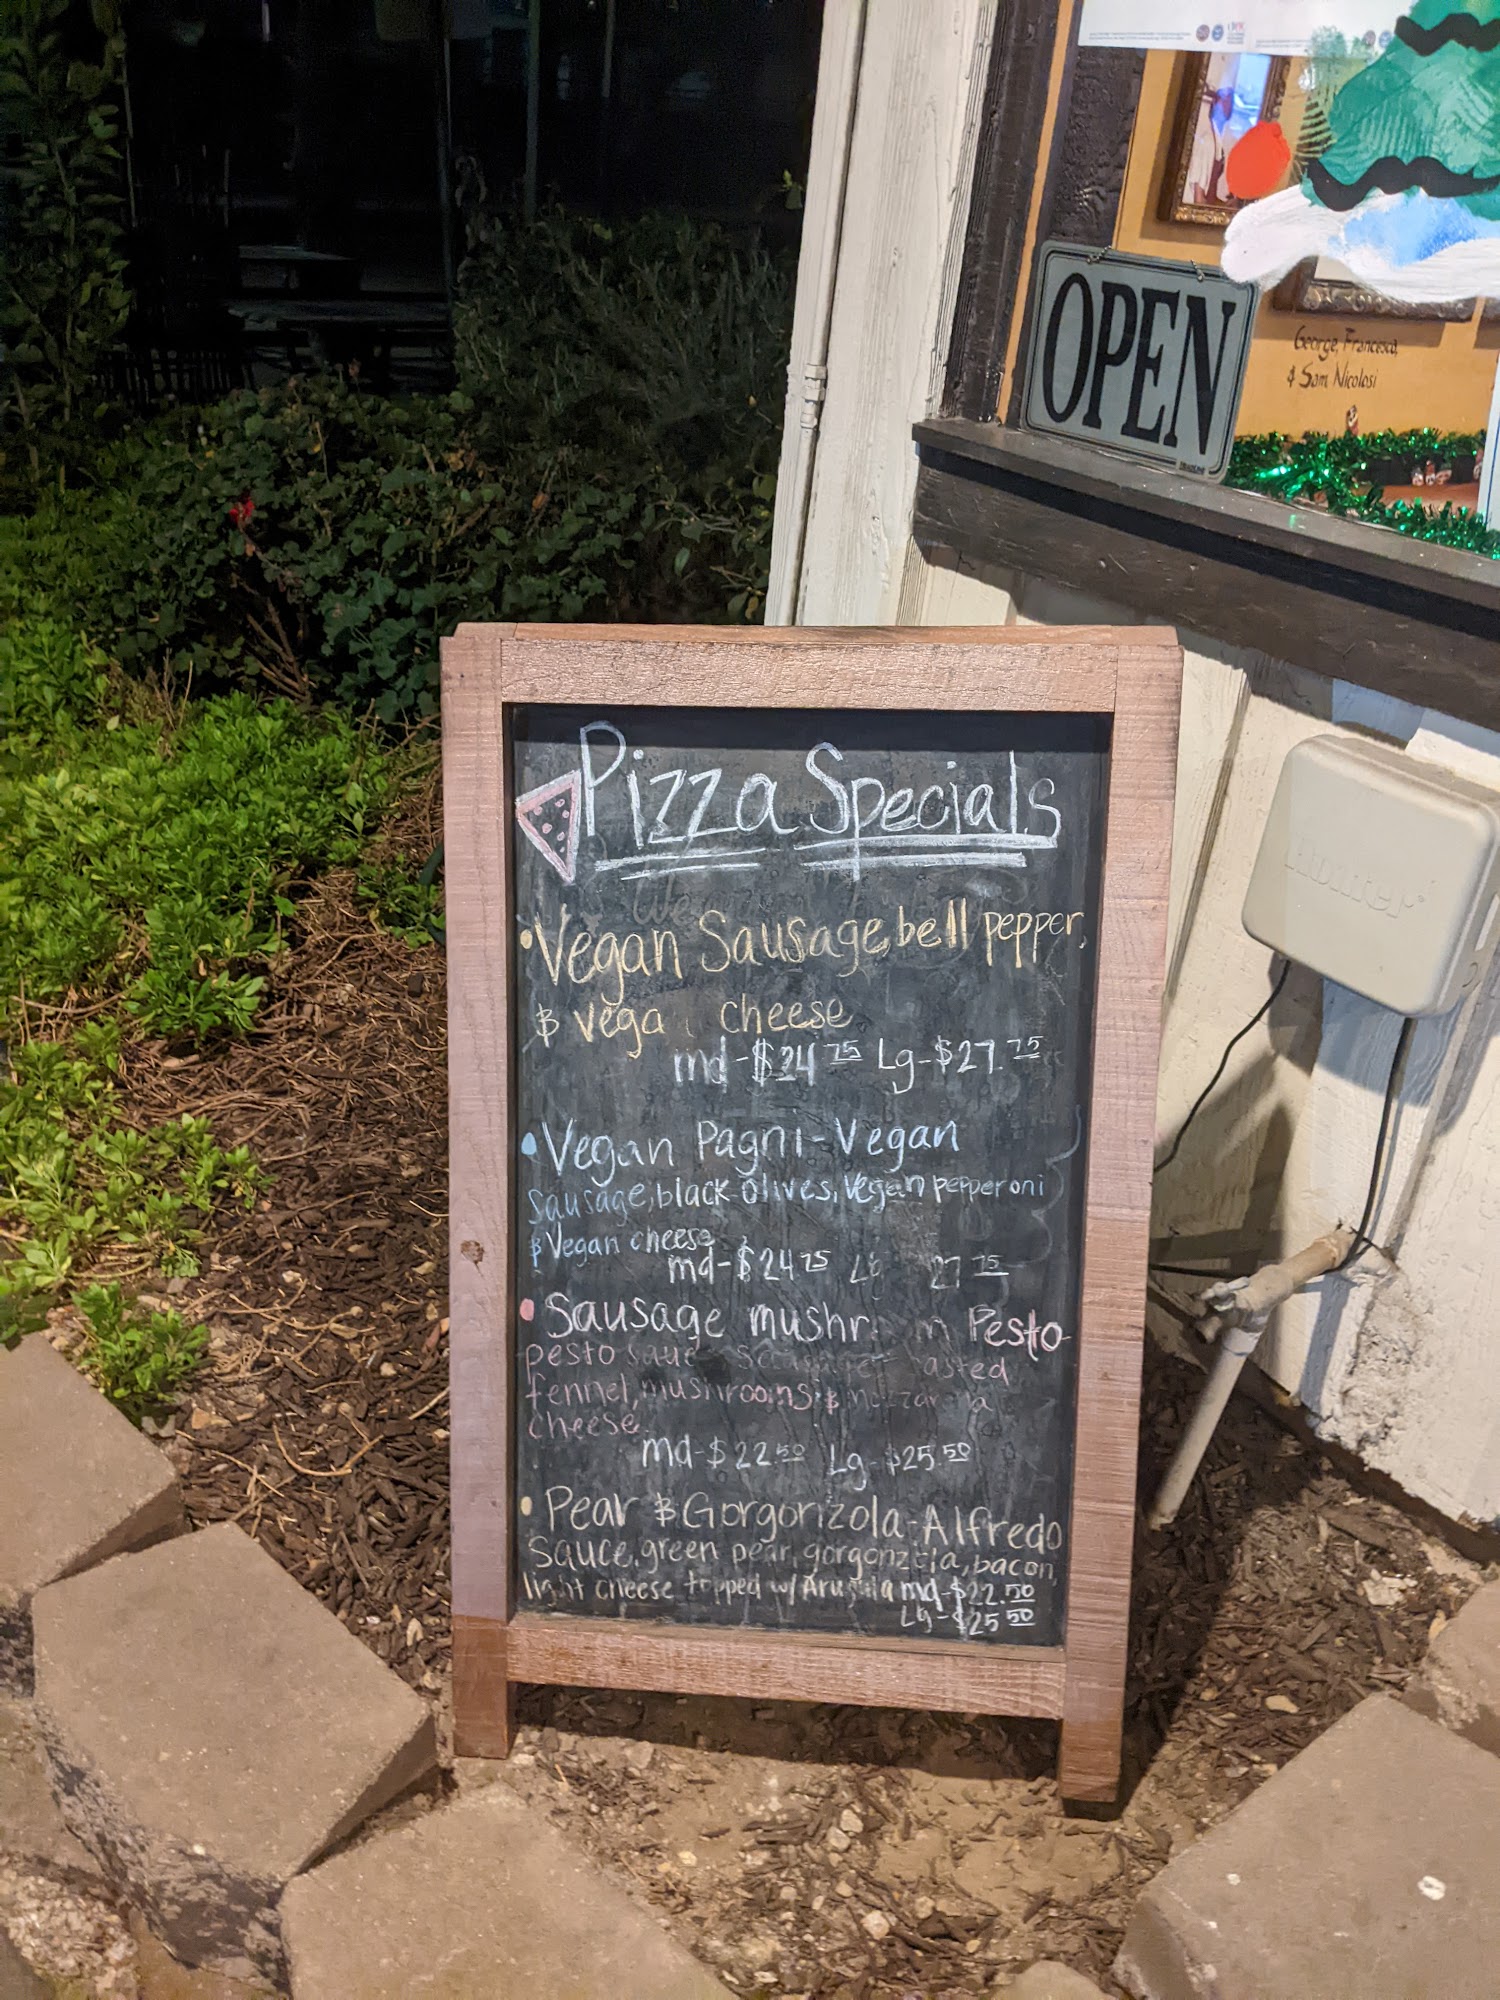 OPEN
George, Francesca,
& Sam Nicolosi
Hunter
Pizza Specials
We
• Vegan Sausage, bell pepper,
& vega cheese
md-$24 75 Lg-$27.75
• Vegan Pagni-Vegan
sausage, black olives, Vegan pepperoni
& Vegan cheese
md-$24 75 Lg 27 75
• Sausage mushr m Pesto-
pesto sauce sausage asted
fennel, mushrooms & mozzarella
cheese
md-$22 50 Lg-$25.50
• Pear & Gorgonzola-Alfredo
Sauce, green pear, gorgonzola, bacon,
light cheese topped w/ Arugula md-$22.50
Lg-$25 50